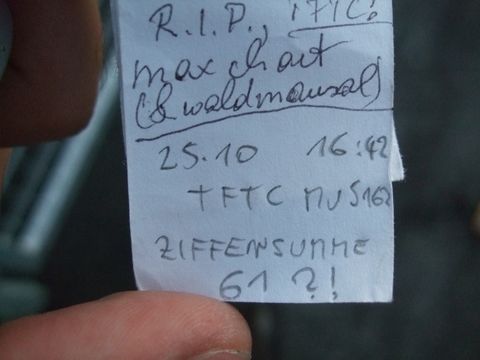 R.I.P., TFTC!
max chart
(& waldmausal)
25.10 16:42
TFTC MUS162
ZIFFENSUMME
61 ?!